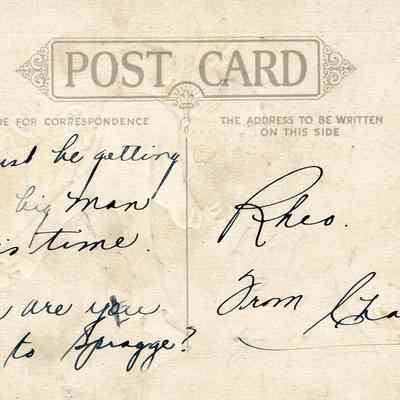 POST CARD
CE FOR CORRESPONDENCE
THE ADDRESS TO BE WRITTEN
ON THIS SIDE
ust be getting
big man
is time.
are you
to Spragge?
Rheo.
From Cha